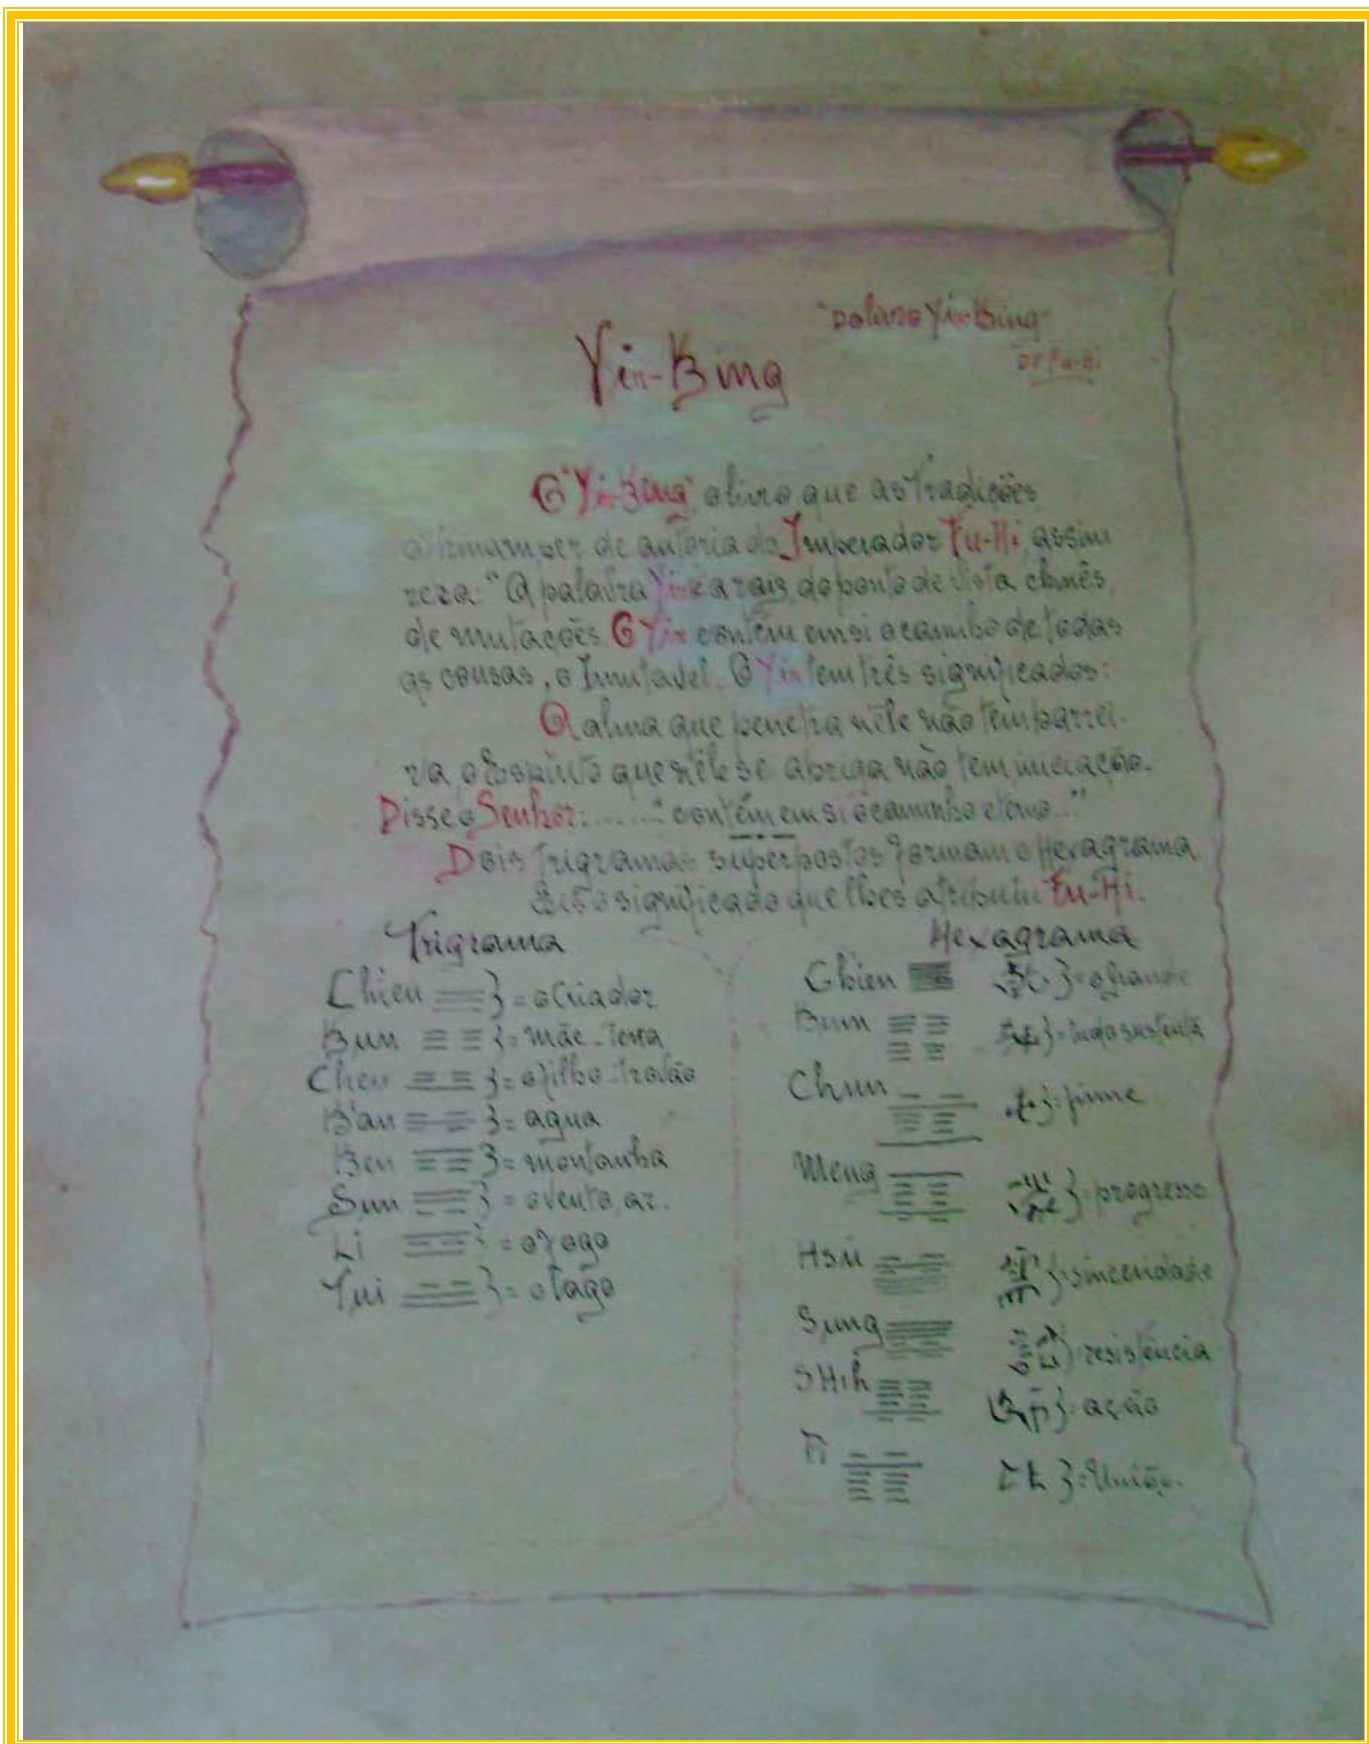 "Do livro Yin-King"
De Fu-Hi
Yin-King
O "Yin-King", o livro que as Tradições
afirmam ser de autoria do Imperador Fu-Hi, assim
reza: "A palavra Yin é a raiz, do ponto de vista chinês,
de mutações. O Yin contém em si o caminho de todas
as cousas, o Imutavel. O Yin tem três significados:
A alma que penetra nêle não tem barrei-
ra, o Espirito que nêle se abriga não tem iniciação.
Disse o Senhor: ...... "contém em si o caminho eterno..."
Dois Trigramas superpostos formam o Hexagrama.
Eis o significado que lhes atribuiu Fu-Hi.
Trigrama
Chien } = o Criador
Kun } = mãe-terra
Chen } = o filho-trovão
K'an } = agua
Ken } = montanha
Sun } = o vento, ar.
Li } = o fogo
Tui } = o lago
Hexagrama
Chien } = o grande
Kun } = tudo sustenta
Chun } = firme
Meng } = progresso
Hsü } = sinceridade
Sung } = resistência
SHih } = ação
Pi } = União.